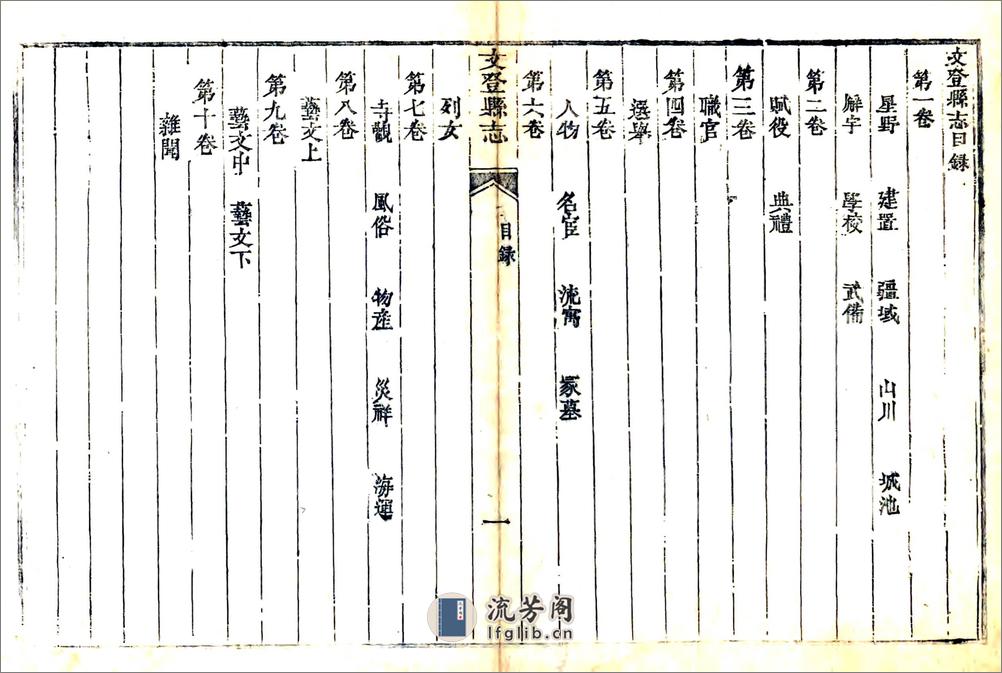 文登縣志目錄
第一卷
星野 建置 疆域 山川 城池
廨宇 學校 武備
第二卷
賦役 典禮
第三卷
職官
第四卷
選舉
第五卷
人物 名宦 流寓 冢墓
第六卷
列女
文登縣志 目錄 一
第七卷
寺觀 風俗 物產 災祥 海運
第八卷
藝文上
第九卷
藝文中 藝文下
第十卷
雜聞
流芳阁
lfglib.cn